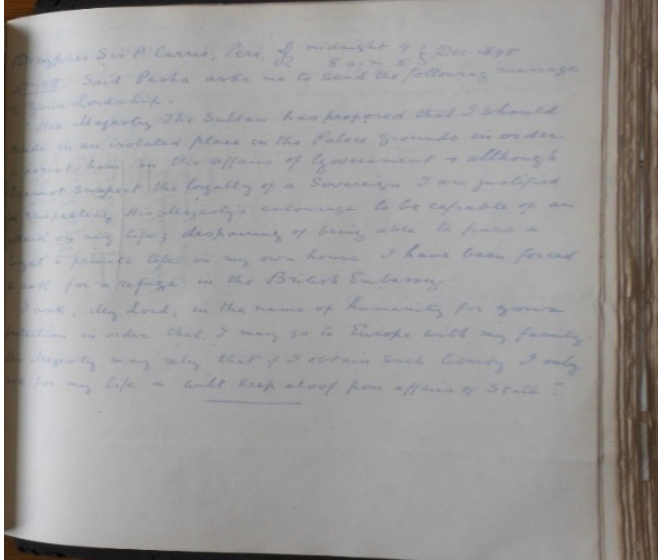 Decypher Sir P. Currie, Pera, Df midnight 4 } Dec. 1895
R 8 a.m. 5
Said Pasha asks me to send the following message
Your Lordship.
His Majesty The Sultan has proposed that I should
in an isolated place in the Palace grounds in order
assist him in the affairs of Government & although
cannot suspect the loyalty of a Sovereign I am justified
suspecting His Majesty's entourage to be capable of an
on my life; despairing of being able to pass a
& private life in my own house I have been forced
ask for a refuge in the British Embassy.
I ask, My Lord, in the name of humanity for your
in order that I may go to Europe with my family.
Majesty may rely that if I obtain such liberty I only
for my life & will keep aloof from affairs of State."